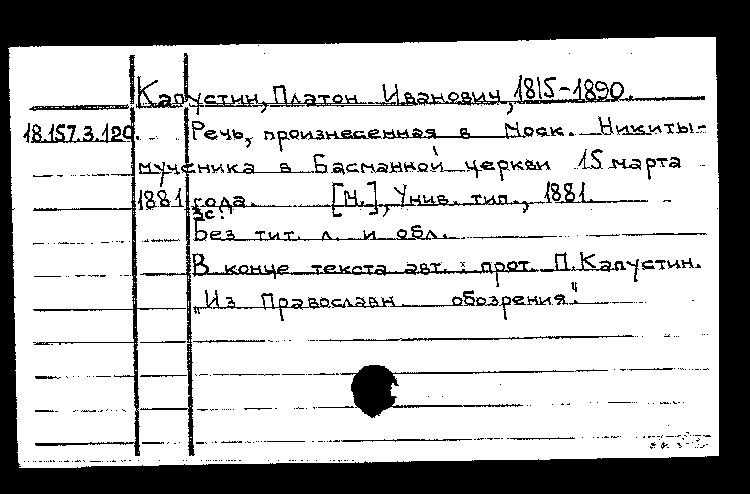 Капустин, Платон Иванович, 1815-1890.
18.157.3.120. Речь, произнесенная в Моск. Никиты-
мученика в Басманной церкви 15 марта
1881 года. [М.], Унив. тип., 1881.
3с.
Без тит. л. и обл.
В конце текста авт.: прот. П. Капустин.
"Из Православн. обозрения".